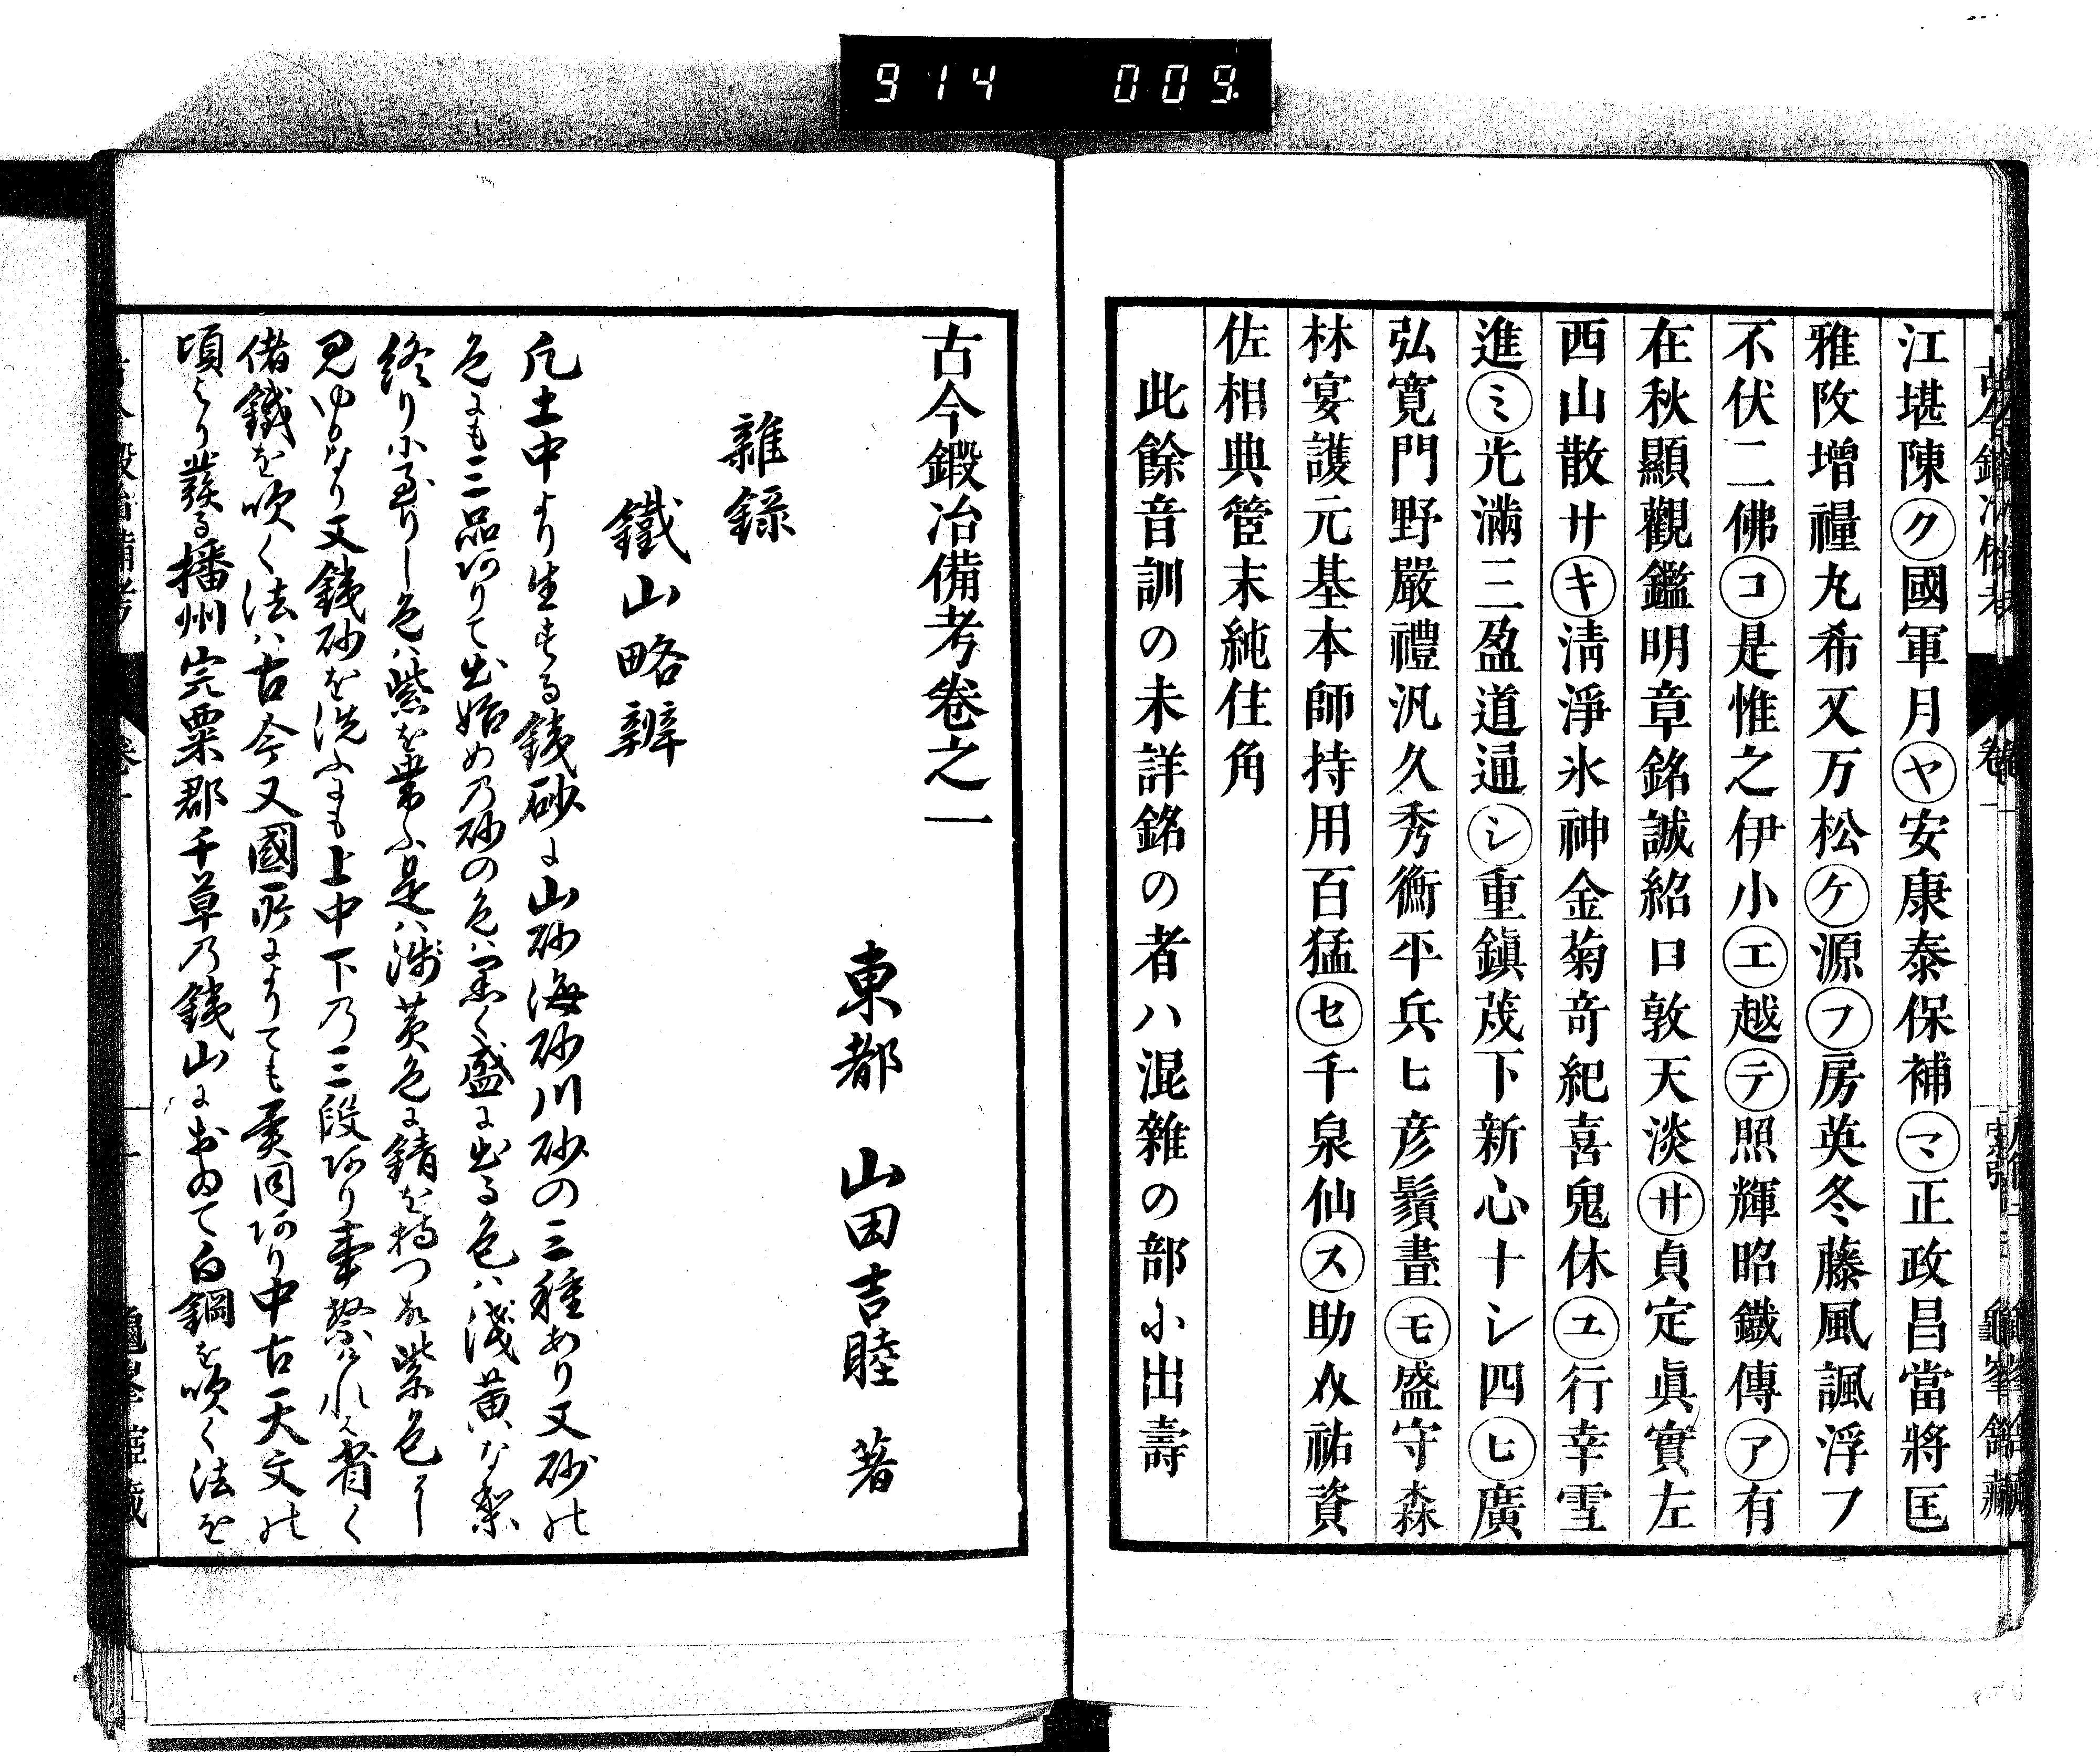 914 009
江堪陳㋗國軍月㋳安康泰保補㋮正政昌當將匡
雅攺増禋丸希又万松㋘源㋫房英冬藤風諷浮フ
不伏二佛㋙是惟之伊小㋓越㋢照輝昭鐵傳㋐有
在秋顯觀鑑明章銘誠紹口敦天淡㋚貞定眞實左
西山散サ㋖淸淨氷神金菊竒紀喜鬼休㋴行幸雪
進㋯光滿三盈道通㋛重鎭茂下新心十シ四㋪廣
弘寛門野嚴禮汎久秀衡平兵ヒ彦鬚晝㋲盛守森
林宴護元基本師持用百猛㋝千泉仙㋜助祐資
佐相典管末純住角
此餘音訓の未詳銘の者ハ混雜の部に出壽
古今鍛冶備考卷之一
東都 山田吉睦 著
雜錄
鐵山略辨
凡土中より生する銕砂に山砂海砂川砂の三種あり又砂の
色にも三品ありて出始めの砂の色は黒く盛に出る色は淺黄な
終りに至りし色は紫を帶ふ是は淺黄色に錆を持つ故紫色に
見ゆるなり又銕砂を洗ふにも上中下の三段あり事繁けれは省く
偖鐵を吹く法は古今又國所によりても異同あり中古天文の
頃より發る播州宍粟郡千草の銕山におゐて白鋼を吹く法を